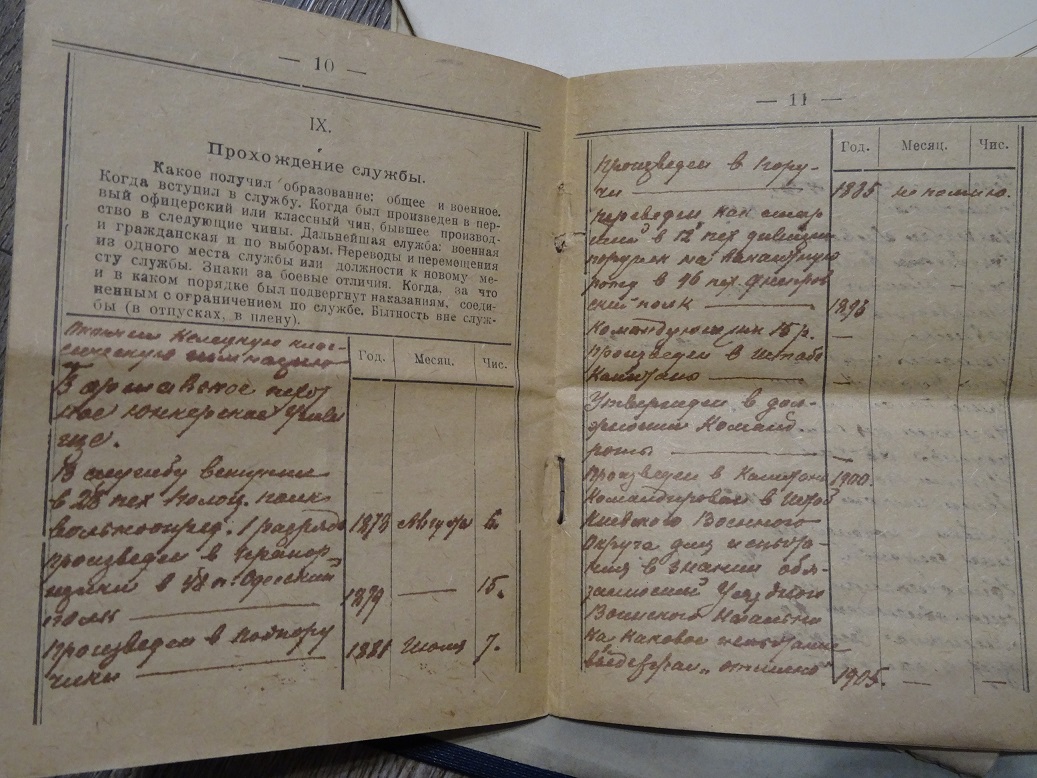 — 10 —
IX.
Прохождение службы.
Какое получил образование: общее и военное.
Когда вступил в службу. Когда был произведен в пер-
вый офицерский или классный чин, бывшее производ-
ство в следующие чины. Дальнейшая служба: военная
и гражданская и по выборам. Переводы и перемещения
из одного места службы или должности к новому ме-
сту службы. Знаки за боевые отличия. Когда, за что
и в каком порядке был подвергнут наказаниям, соеди-
ненным с ограничением по службе. Бытность вне служ-
бы (в отпусках, в плену).
Год. Месяц. Чис.
классическую гимназию
Варшавское пехот
ное юнкерское Учили
ще.
В службу вступил
в 28 пех Полоц. полк
вольноопред. 1 разряда 1875 Августа 6.
произведен в Прапор-
щики в 48 п. Одесский
полк — 1879 — 15.
Произведен в Подпору
чики — 1881 Июля 7.
— 11 —
Год. Месяц. Чис.
Произведен в Пору-
чи — 1885 не помню.
Переведен как стар
ший в 12 пех дивизии
поручик на
роту в 46 пех. Днепров
ский полк — 1893
Командующим 15 р. —
Произведен в Штабс
Капитаны — —
Утвержден в дол-
жности Команд
роты — —
Произведен в Капитаны 1900.
Командирован в Штаб
Киевского Военного
Округа для испыта-
ния в знании обя-
занностей Уездного
Воинского Начальни
ка каковое испытание
выдержал „отлично“ 1905. — —